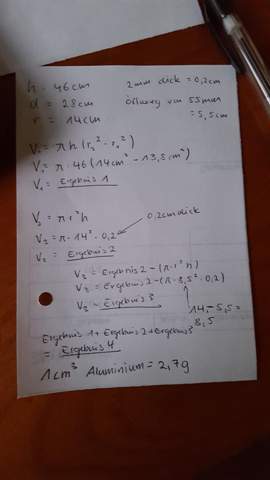 h = 46cm 2mm dick = 0,2cm
d = 28cm Öffnung von 55mm
r = 14cm = 5,5cm
V₁ = π h (r₂² - r₁²)
V₁ = π · 46 (14cm² - 13,8cm²)
V₁ = Ergebnis 1
V₂ = π r² h 0,2cm dick
V₂ = π · 14² · 0,2
V₂ = Ergebnis 2
V₃ = Ergebnis 2 - (π · r² h)
V₃ = Ergebnis 2 - (π · 8,5² · 0,2)
V₃ = Ergebnis 3
14 - 5,5 =
8,5
Ergebnis 1 + Ergebnis 2 + Ergebnis 3
= Ergebnis 4
1cm³ Aluminium = 2,7g